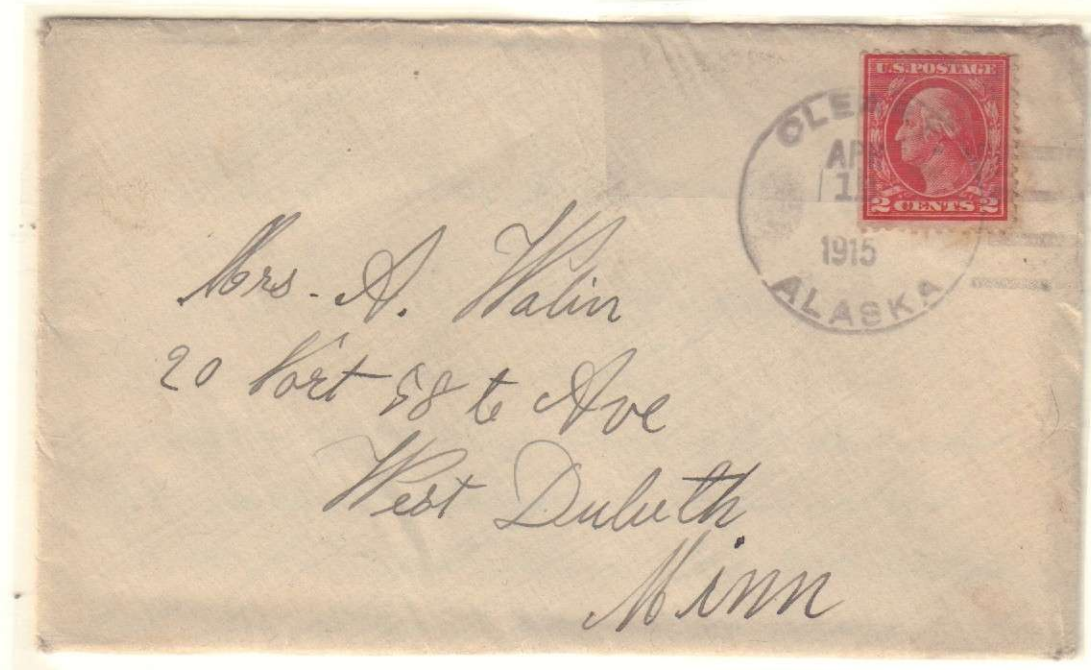 U.S. POSTAGE
2 CENTS 2
APR
1915
ALASKA
Mrs. A. Walin
20 Nort 58 t Ave
West Duluth
Minn